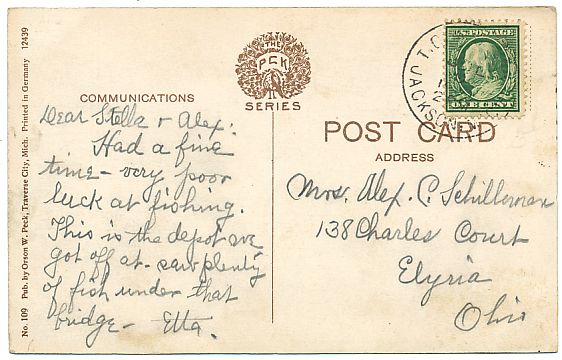 No. 109 Pub. by Orson W. Peck, Traverse City, Mich. Printed in Germany 12439
THE
PCK
SERIES
COMMUNICATIONS
Dear Stella & Alex:
Had a fine
time - very poor
luck at fishing.
This is the depot we
got off at - saw plenty
of fish under that
bridge - Etta.
POST CARD
ADDRESS
Mrs. Alex. C. Schillerman
138 Charles Court
Elyria
Ohio
ONE CENT
T. JACKSON